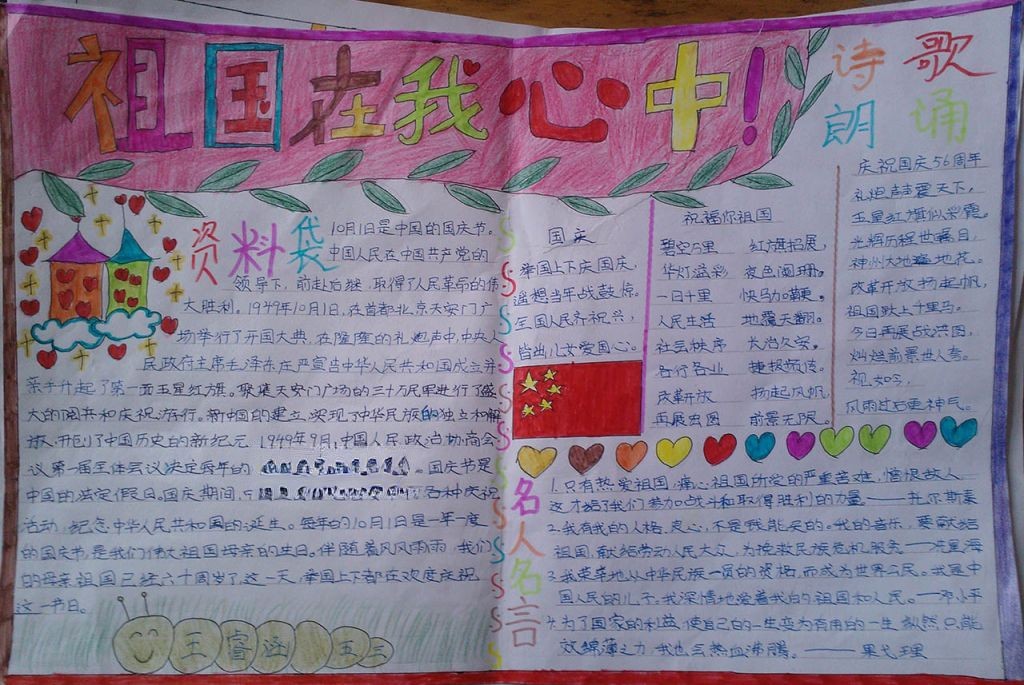 祖国在我心中！
诗歌
朗诵
资料袋
10月1日是中国的国庆节。
中国人民在中国共产党的
领导下，前赴后继，取得了人民革命的伟
大胜利。1949年10月1日，在首都北京天安门广
场举行了开国大典，在隆隆的礼炮声中，中央人
民政府主席毛泽东庄严宣告中华人民共和国成立并
亲手升起了第一面五星红旗。聚集天安门广场的三十万军民进行了盛
大的阅兵和庆祝游行。新中国的建立，实现了中华民族的独立和解
放，开创了中国历史的新纪元 1949年9月，中国人民政治协商会
议第一届全体会议决定每年的
。国庆节是
中国的法定假日。国庆期间，
各种庆祝
活动，纪念中华人民共和国的诞生。每年的10月1日是一年一度
的国庆节，是我们伟大祖国母亲的生日。伴随着风风雨雨，我们
的母亲祖国已经六十周岁了，这一天，举国上下都在欢度庆祝
这一节日。
王睿 五三
国庆
举国上下庆国庆，
遥想当年战鼓惊。
全国人民齐祝兴，
皆出儿女爱国心。
祝福你祖国
碧空万里 红旗招展，
华灯溢彩 夜色阑珊。
一日千里 快马加鞭。
人民生活 地覆天翻。
社会秩序 长治久安。
各行各业 捷报频传。
改革开放 扬起风帆，
再展宏图 前景无限。
庆祝国庆56周年
礼炮声声震天下，
五星红旗似彩霞。
光辉历程世瞩目，
神州大地遍地花。
改革开放扬起帆，
祖国跃上千里马。
今日再展战洪图，
灿烂前景世人夸。
祝如今，
风雨过后更神气。
名人名言
1.只有热爱祖国，痛心祖国所受的严重苦难，憎恨敌人
这才给了我们参加战斗和取得胜利的力量——托尔斯泰
2.我有我的人格、良心，不是钱能买的。我的音乐，要献给
祖国，献给劳动人民大众，为挽救民族危机服务——冼星海
3.我荣幸地从中华民族一员的资格，而成为世界公民。我是中
国人民的儿子。我深情地爱着我的祖国和人民。—邓小平
4.为了国家的利益，使自己的一生变为有用的一生，纵然只能
效绵薄之力，我也会热血沸腾。——果戈理